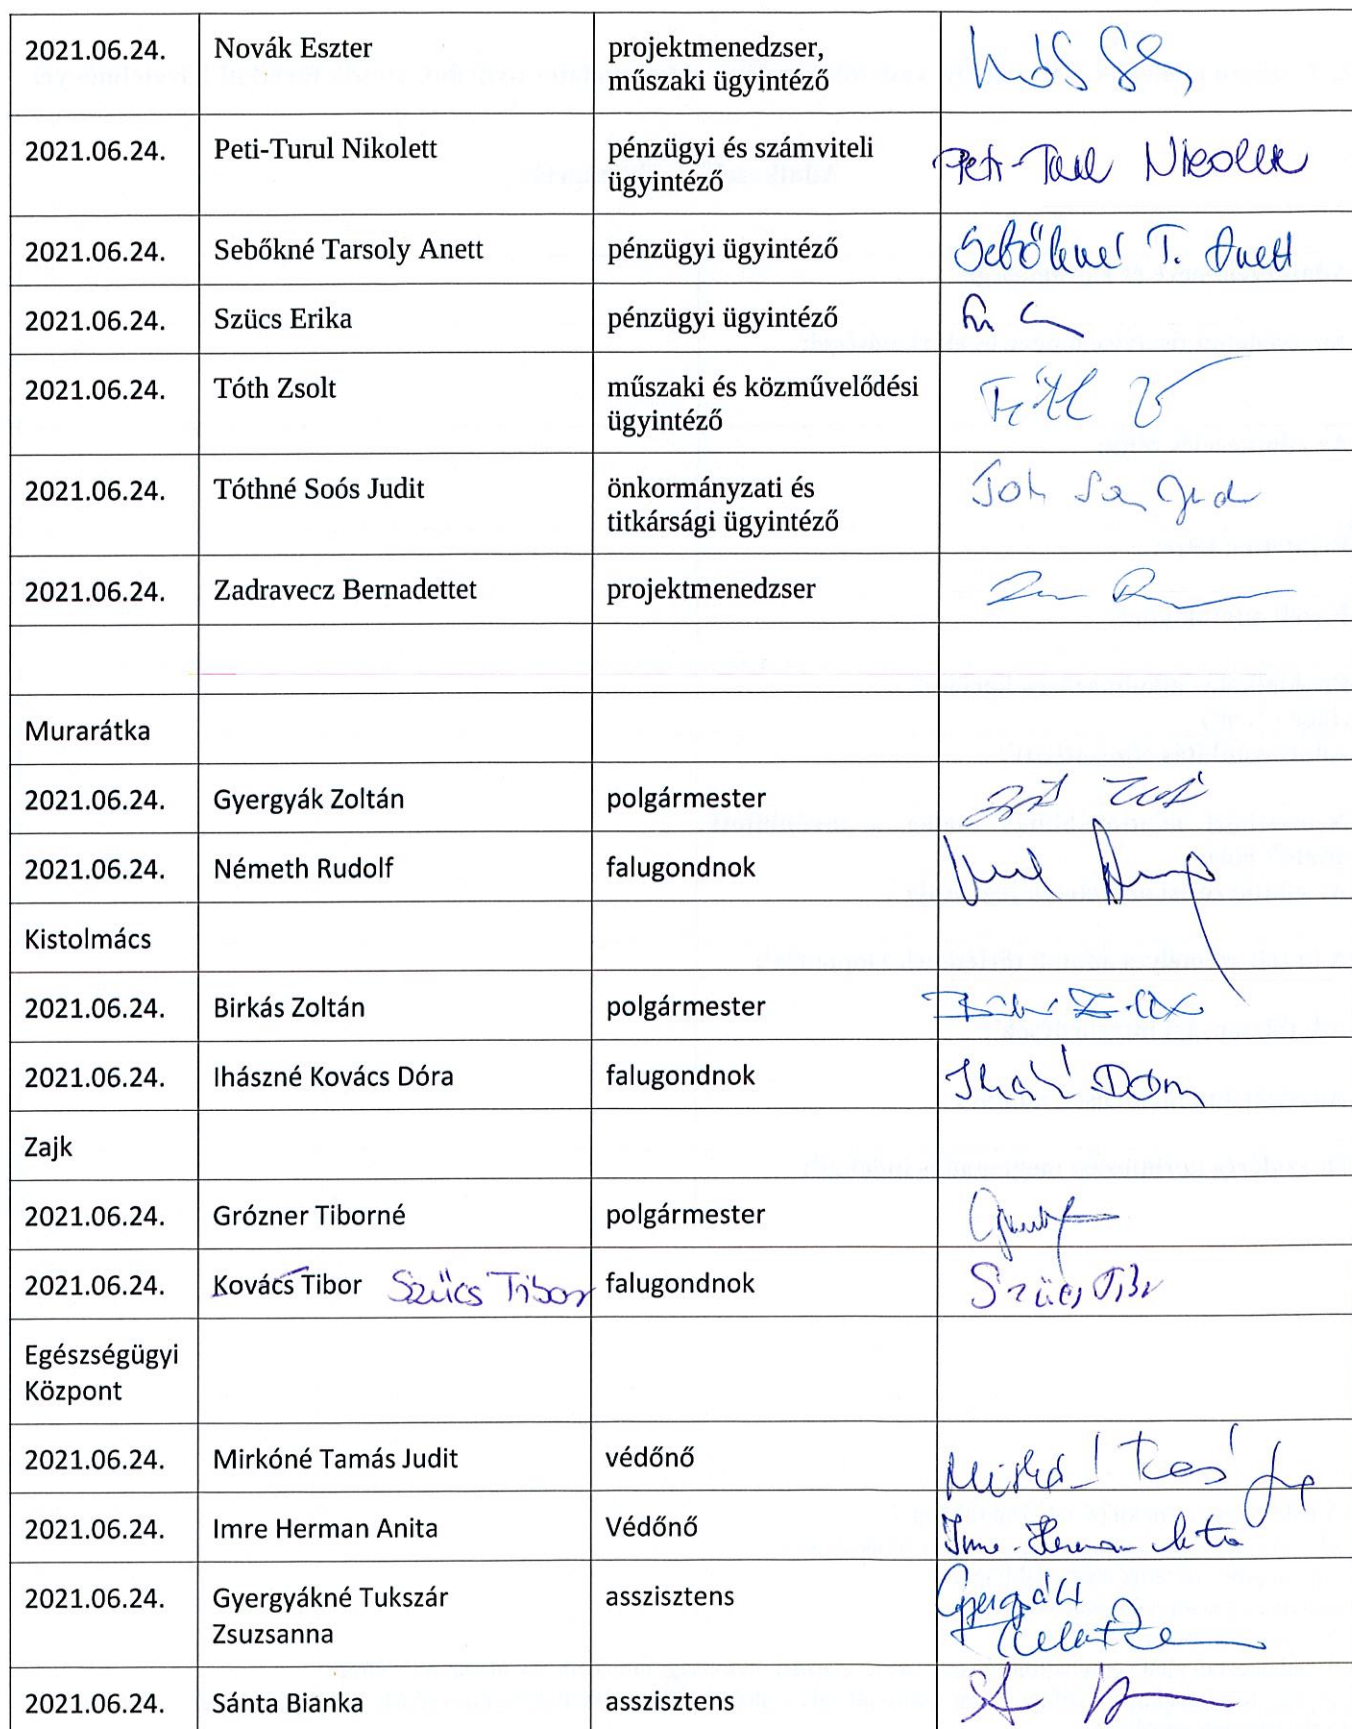 2021.06.24. Novák Eszter projektmenedzser,
műszaki ügyintéző
2021.06.24. Peti-Turul Nikolett pénzügyi és számviteli
ügyintéző
2021.06.24. Sebőkné Tarsoly Anett pénzügyi ügyintéző Sebőkné T. Anett
2021.06.24. Szücs Erika pénzügyi ügyintéző
2021.06.24. Tóth Zsolt műszaki és közművelődési
ügyintéző
2021.06.24. Tóthné Soós Judit önkormányzati és
titkársági ügyintéző
2021.06.24. Zadravecz Bernadettet projektmenedzser
Murarátka
2021.06.24. Gyergyák Zoltán polgármester
2021.06.24. Németh Rudolf falugondnok
Kistolmács
2021.06.24. Birkás Zoltán polgármester
2021.06.24. Ihászné Kovács Dóra falugondnok
Zajk
2021.06.24. Grózner Tiborné polgármester
2021.06.24. Kovács Tibor Szücs Tibor falugondnok Szücs Tibor
Egészségügyi
Központ
2021.06.24. Mirkóné Tamás Judit védőnő
2021.06.24. Imre Herman Anita Védőnő
2021.06.24. Gyergyákné Tukszár asszisztens
Zsuzsanna
2021.06.24. Sánta Bianka asszisztens